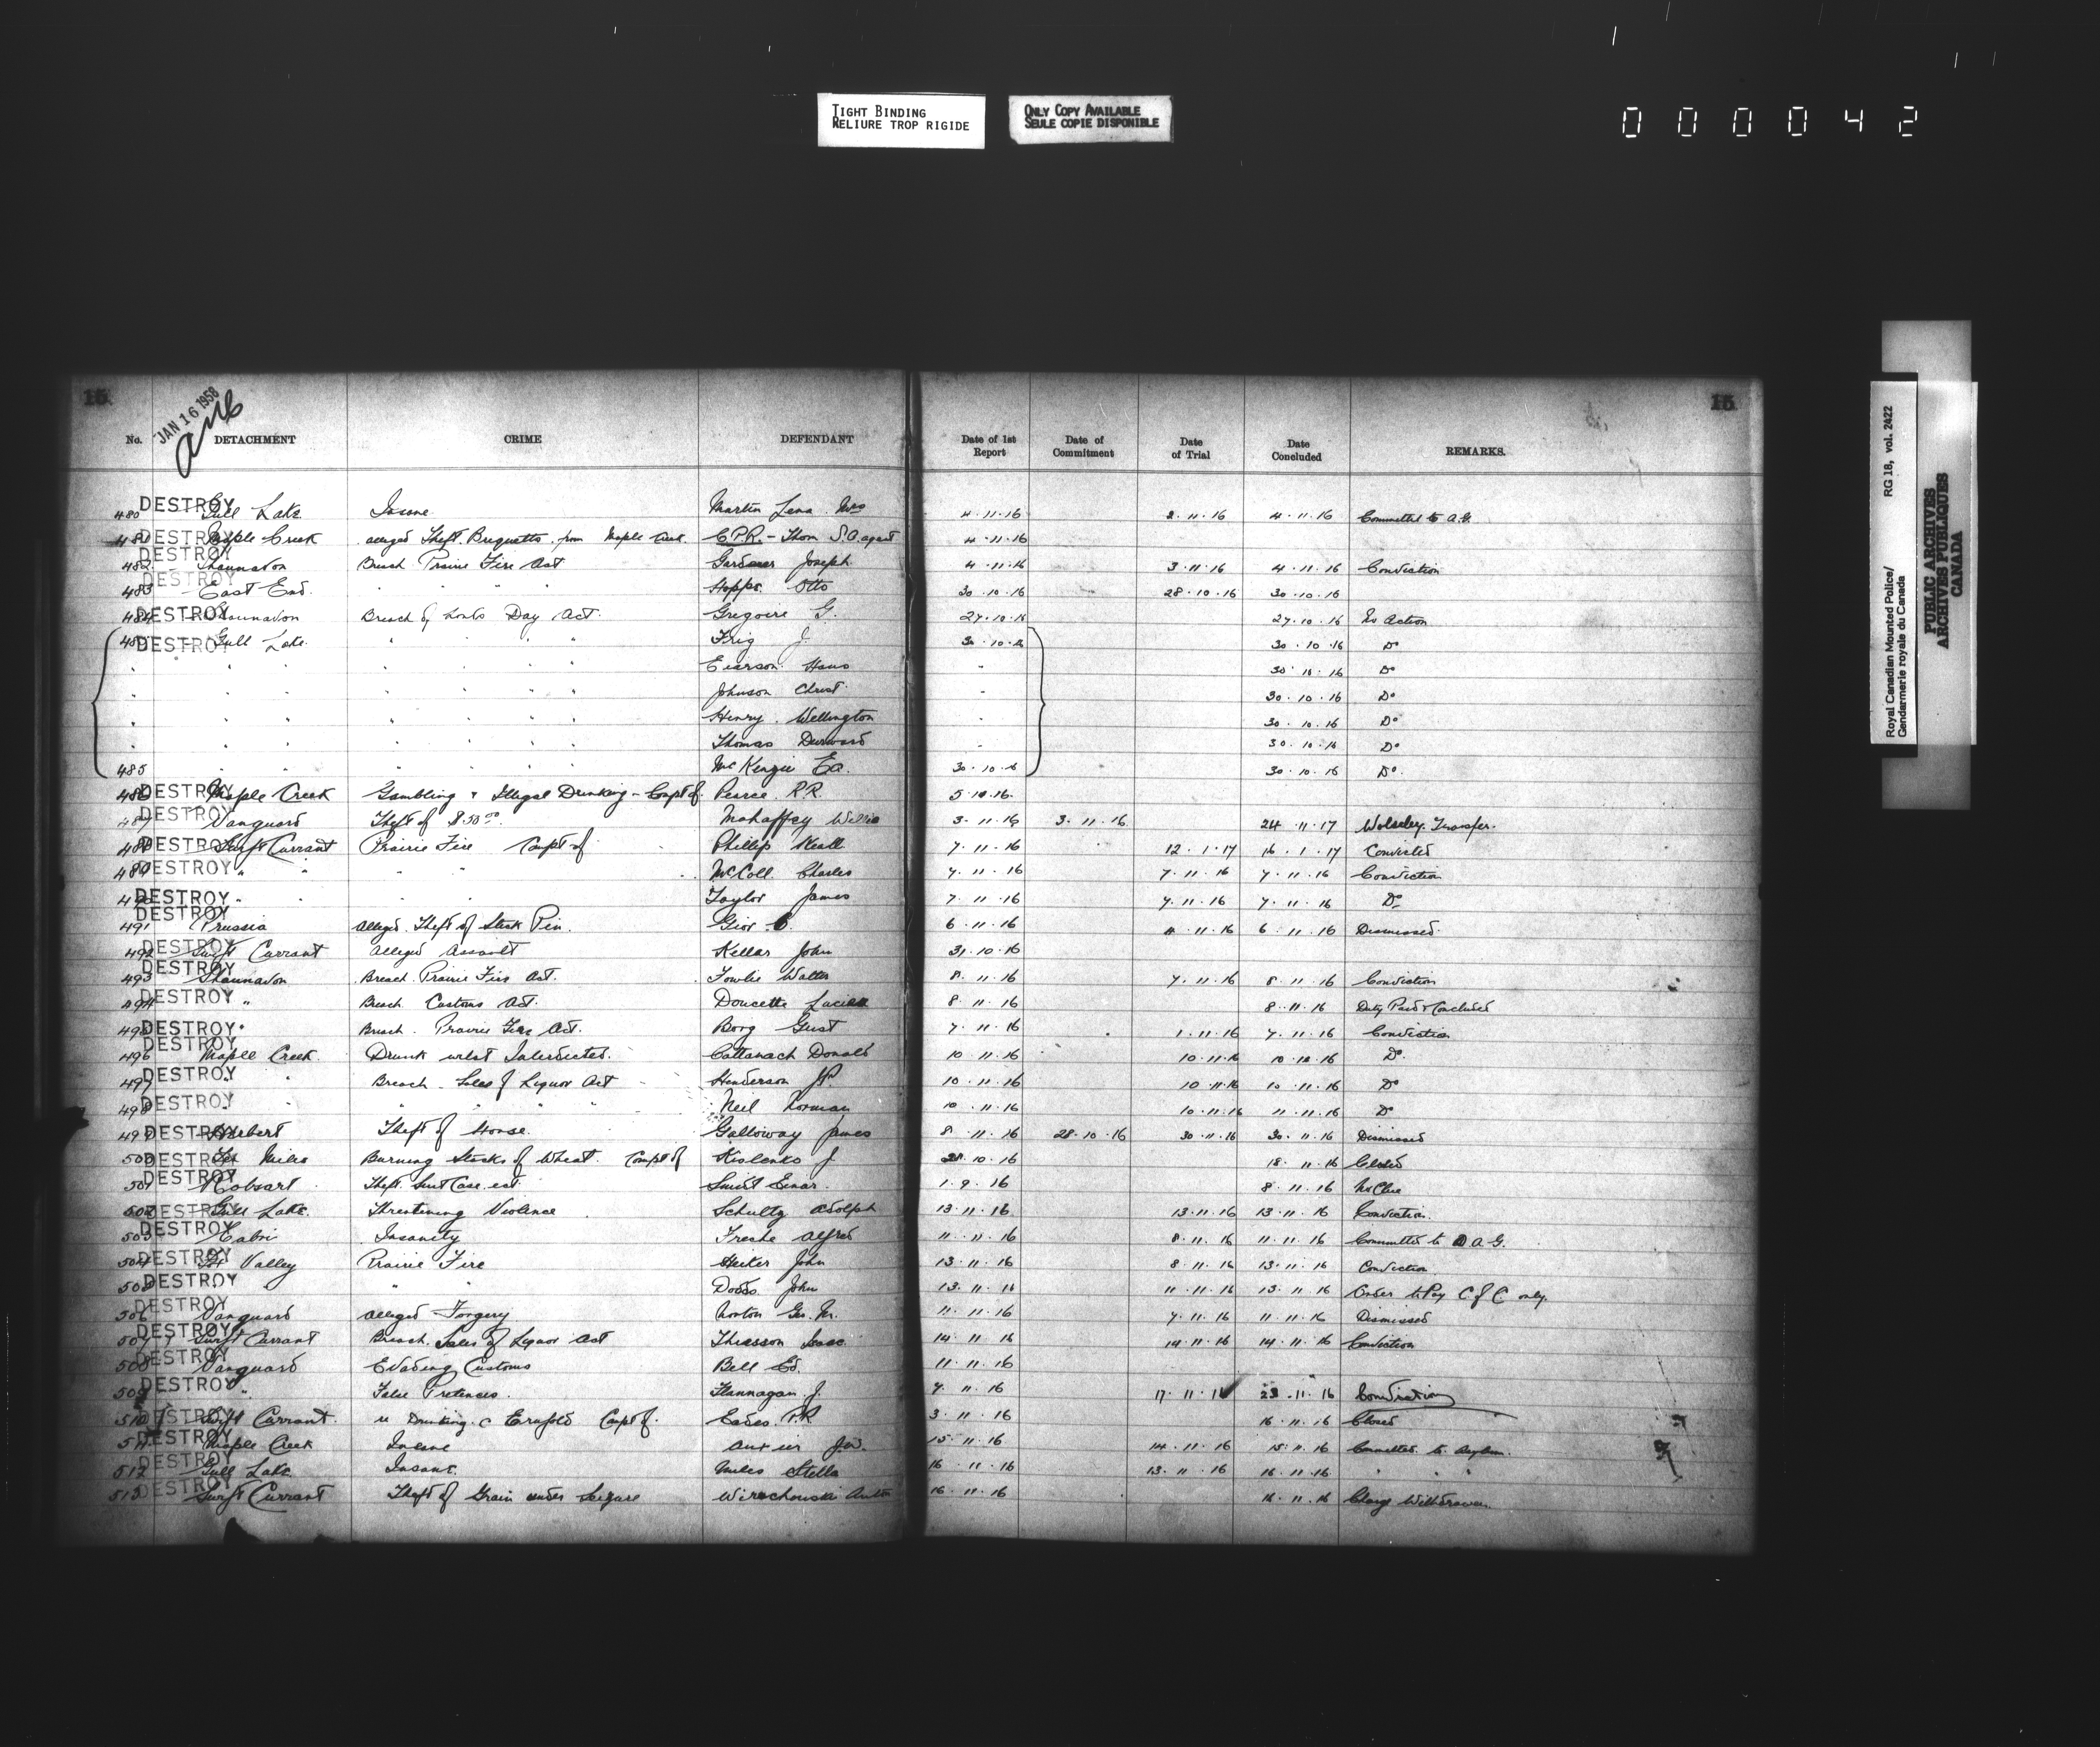 TIGHT BINDING
RELIURE TROP RIGIDE
ONLY COPY AVAILABLE
SEULE COPIE DISPONIBLE
000042
15. 15
JAN 16 1958
No. DETACHMENT CRIME DEFENDANT Date of 1st Report Date of Commitment Date of Trial Date Concluded REMARKS.
480 DESTROY Gull Lake Insane Martin Lena Mrs 4.11.16 2.11.16 4.11.16 Committed to A.G.
481 DESTROY Maple Creek alleged Theft Briquetts from Maple Creek C.P.R. - Thom S.A. agent 4.11.16
482 DESTROY Shaunavon Breach Prairie Fire Act Joseph 4.11.16 3.11.16 4.11.16 Conviction
483 DESTROY East End " " " Hopps Otto 30.10.16 28.10.16 30.10.16
484 DESTROY Shaunavon Breach of Lords Day Act. Gregoire G. 27.10.16 27.10.16 No Action
485 DESTROY Gull Lake " " " Frig J. 30.10.16 30.10.16 Do
" " " " " " Hans " 30.10.16 Do
" " " " " " Johnson Christ " 30.10.16 Do
" " " " " " Henry Wellington " 30.10.16 Do
" " " " " " Thomas Durward " 30.10.16 Do
485 " " " " " McKenzie Ed. 30.10.16 30.10.16 Do.
486 DESTROY Maple Creek Gambling & Illegal Drinking - Compt of Pearce R.R. 5.10.16.
487 DESTROY Vanguard Theft of $50.00. Mahaffey Willie 3.11.16 3.11.16. 24.11.17 Wolseley. Transfer.
488 DESTROY Swift Currant Prairie Fire Compt of Phillip 7.11.16 12.1.17 16.1.17 Convicted
489 DESTROY " " " " McColl Charles 7.11.16 7.11.16 7.11.16 Conviction
490 DESTROY " Taylor James 7.11.16 7.11.16 7.11.16 Do
491 DESTROY Prussia alleged Theft of Stick Pin. 6.11.16 4.11.16 6.11.16 Dismissed
492 DESTROY Swift Currant alleged Assault Kellar John 31.10.16
493 DESTROY Shaunavon Breach Prairie Fire Act. Fowlie Walter 8.11.16 7.11.16 8.11.16 Conviction
494 DESTROY " Breach Customs Act. Doucette 8.11.16 8.11.16 Duty Paid & Concluded
495 DESTROY " Breach Prairie Fire Act. Borg Gust 7.11.16 1.11.16 7.11.16 Conviction
496 DESTROY Maple Creek Drunk whilst Interdicted. Cattanach Donald 10.11.16 10.11.16 10.12.16 Do.
497 DESTROY " " Breach Sales of Liquor Act Henderson J.P. 10.11.16 10.11.16 10.11.16 Do
498 DESTROY " " " " " Neil Norman 10.11.16 10.11.16 11.11.16 Do
499 DESTROY Herbert Theft of Horse. Galloway James 8.11.16 28.10.16 30.11.16 30.11.16 Dismissed
500 DESTROY Ten Miles Burning Stacks of Wheat. Compt of Kislenko J 28.10.16 18.11.16 Closed
501 DESTROY Robsart Theft Suit Case ect. Smidt Einar 1.9.16 8.11.16 No Clue
502 DESTROY Gull Lake Threatening Violence Schultz Adolph 13.11.16 13.11.16 13.11.16 Conviction.
503 DESTROY Cabri Insanity Freske Alfred 11.11.16 8.11.16 11.11.16 Committed to A.G.
504 DESTROY Valley Prairie Fire John 13.11.16 8.11.16 13.11.16 Conviction
505 DESTROY " " " Dodds John 13.11.16 11.11.16 13.11.16 Order to Pay C of C only.
506 DESTROY Vanguard alleged Forgery Norton Geo. M. 11.11.16 7.11.16 11.11.16 Dismissed
507 DESTROY Swift Currant Breach Sales of Liquor Act Thiesson Isaac 14.11.16 14.11.16 14.11.16 Conviction
508 DESTROY Vanguard Evading Customs Bell Ed. 11.11.16
509 DESTROY " False Pretences. Flannagan J. 7.11.16 17.11.16 23.11.16 Conviction
510 DESTROY Swift Currant. Drinking Compt of. Eades P.R 3.11.16 16.11.16 Closed
511 DESTROY Maple Creek Insane J.W. 15.11.16 14.11.16 15.11.16 Committed to Asylum.
512 DESTROY Gull Lake Insane. Miles Stella 16.11.16 13.11.16 16.11.16 " " "
513 DESTROY Swift Currant Theft of Grain under Seizure Wirachowski Anton 16.11.16 16.11.16 Charge Withdrawn
Royal Canadian Mounted Police/ RG 18, vol. 2422
Gendarmerie royale du Canada
PUBLIC ARCHIVES
ARCHIVES PUBLIQUES
CANADA